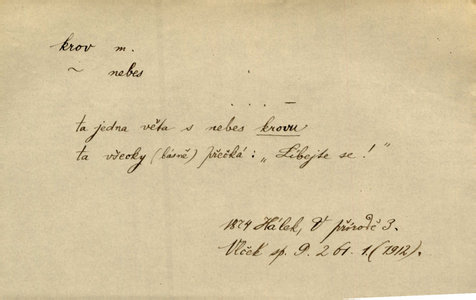 krov m.
~ nebes
. . . —
ta jedna věta s nebes krovu
ta všecky (básně) přečká: „Líbejte se!"
1874 Hálek, V přírodě 3.
Vlček sp. 9. 2 61. 1. (1912).